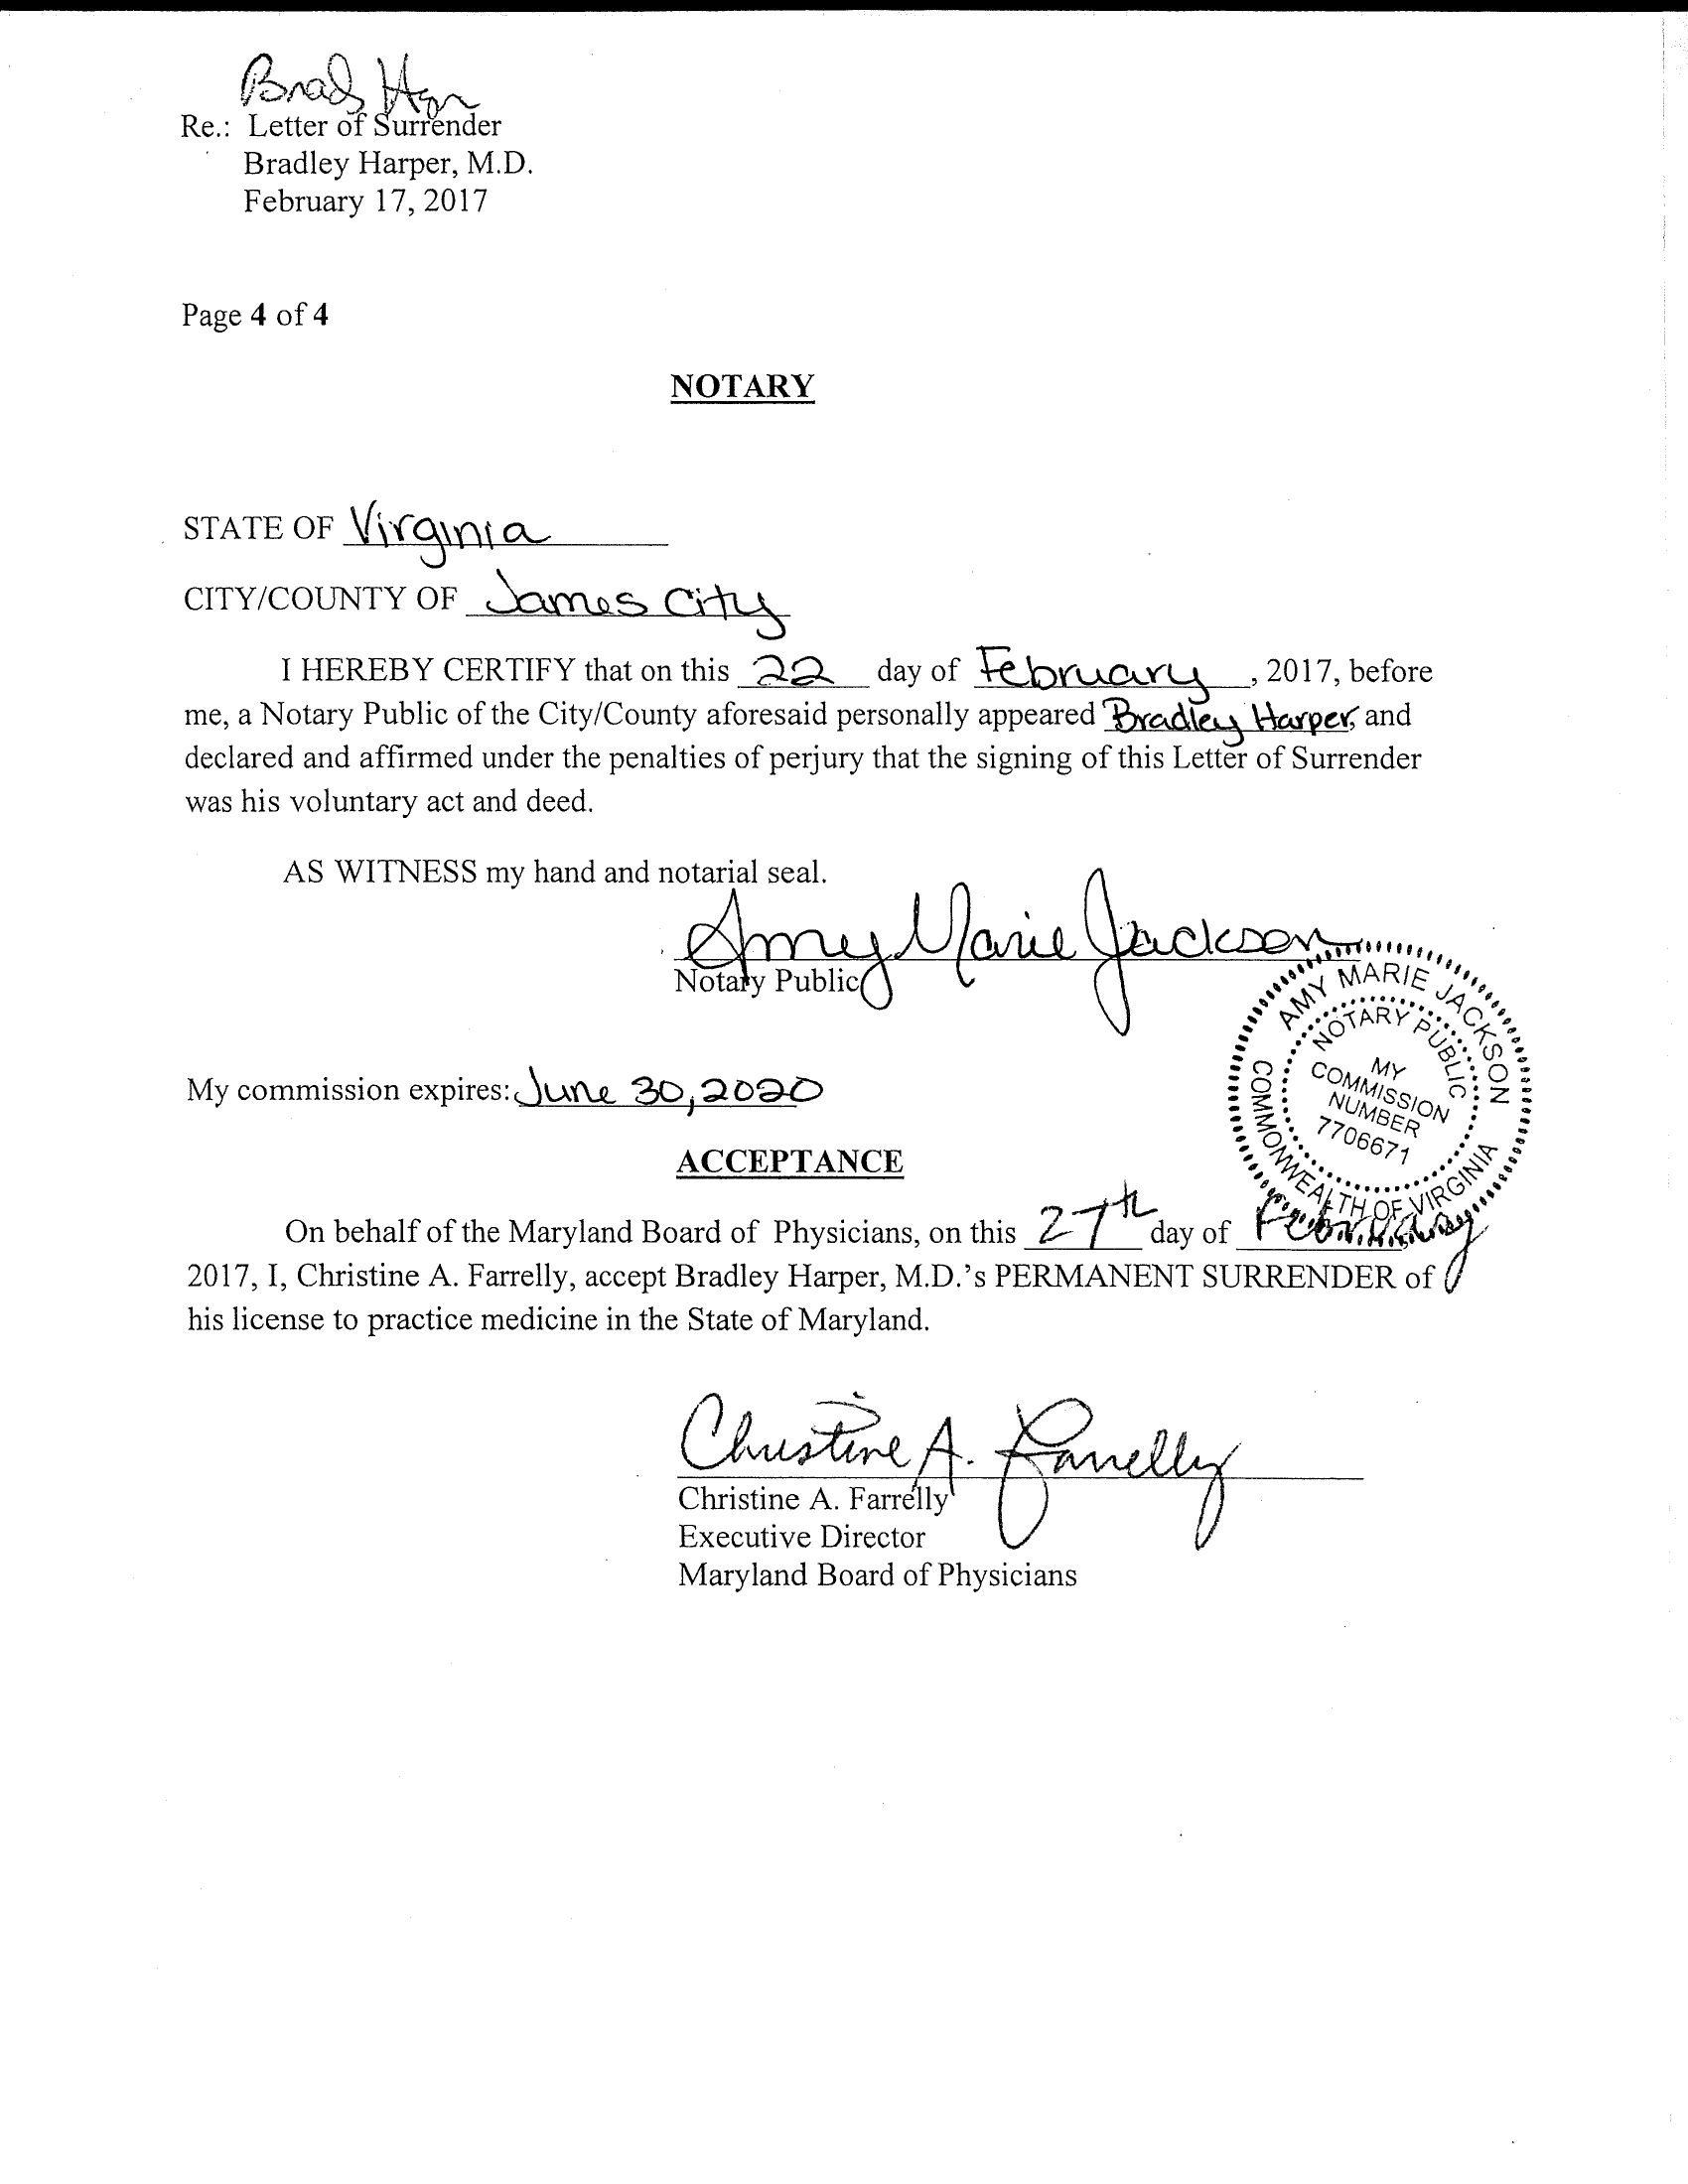 Brad Harper
Re.: Letter of Surrender
Bradley Harper, M.D.
February 17, 2017
Page 4 of 4
NOTARY
STATE OF Virginia
CITY/COUNTY OF James City
I HEREBY CERTIFY that on this 22 day of February, 2017, before
me, a Notary Public of the City/County aforesaid personally appeared Bradley Harper, and
declared and affirmed under the penalties of perjury that the signing of this Letter of Surrender
was his voluntary act and deed.
AS WITNESS my hand and notarial seal.
Amy Marie Jackson
Notary Public
AMY MARIE JACKSON
NOTARY PUBLIC
MY
COMMISSION
NUMBER
7706671
COMMONWEALTH OF VIRGINIA
My commission expires: June 30, 2020
ACCEPTANCE
On behalf of the Maryland Board of Physicians, on this 27th day of February,
2017, I, Christine A. Farrelly, accept Bradley Harper, M.D.'s PERMANENT SURRENDER of
his license to practice medicine in the State of Maryland.
Christine A. Farrelly
Christine A. Farrelly
Executive Director
Maryland Board of Physicians